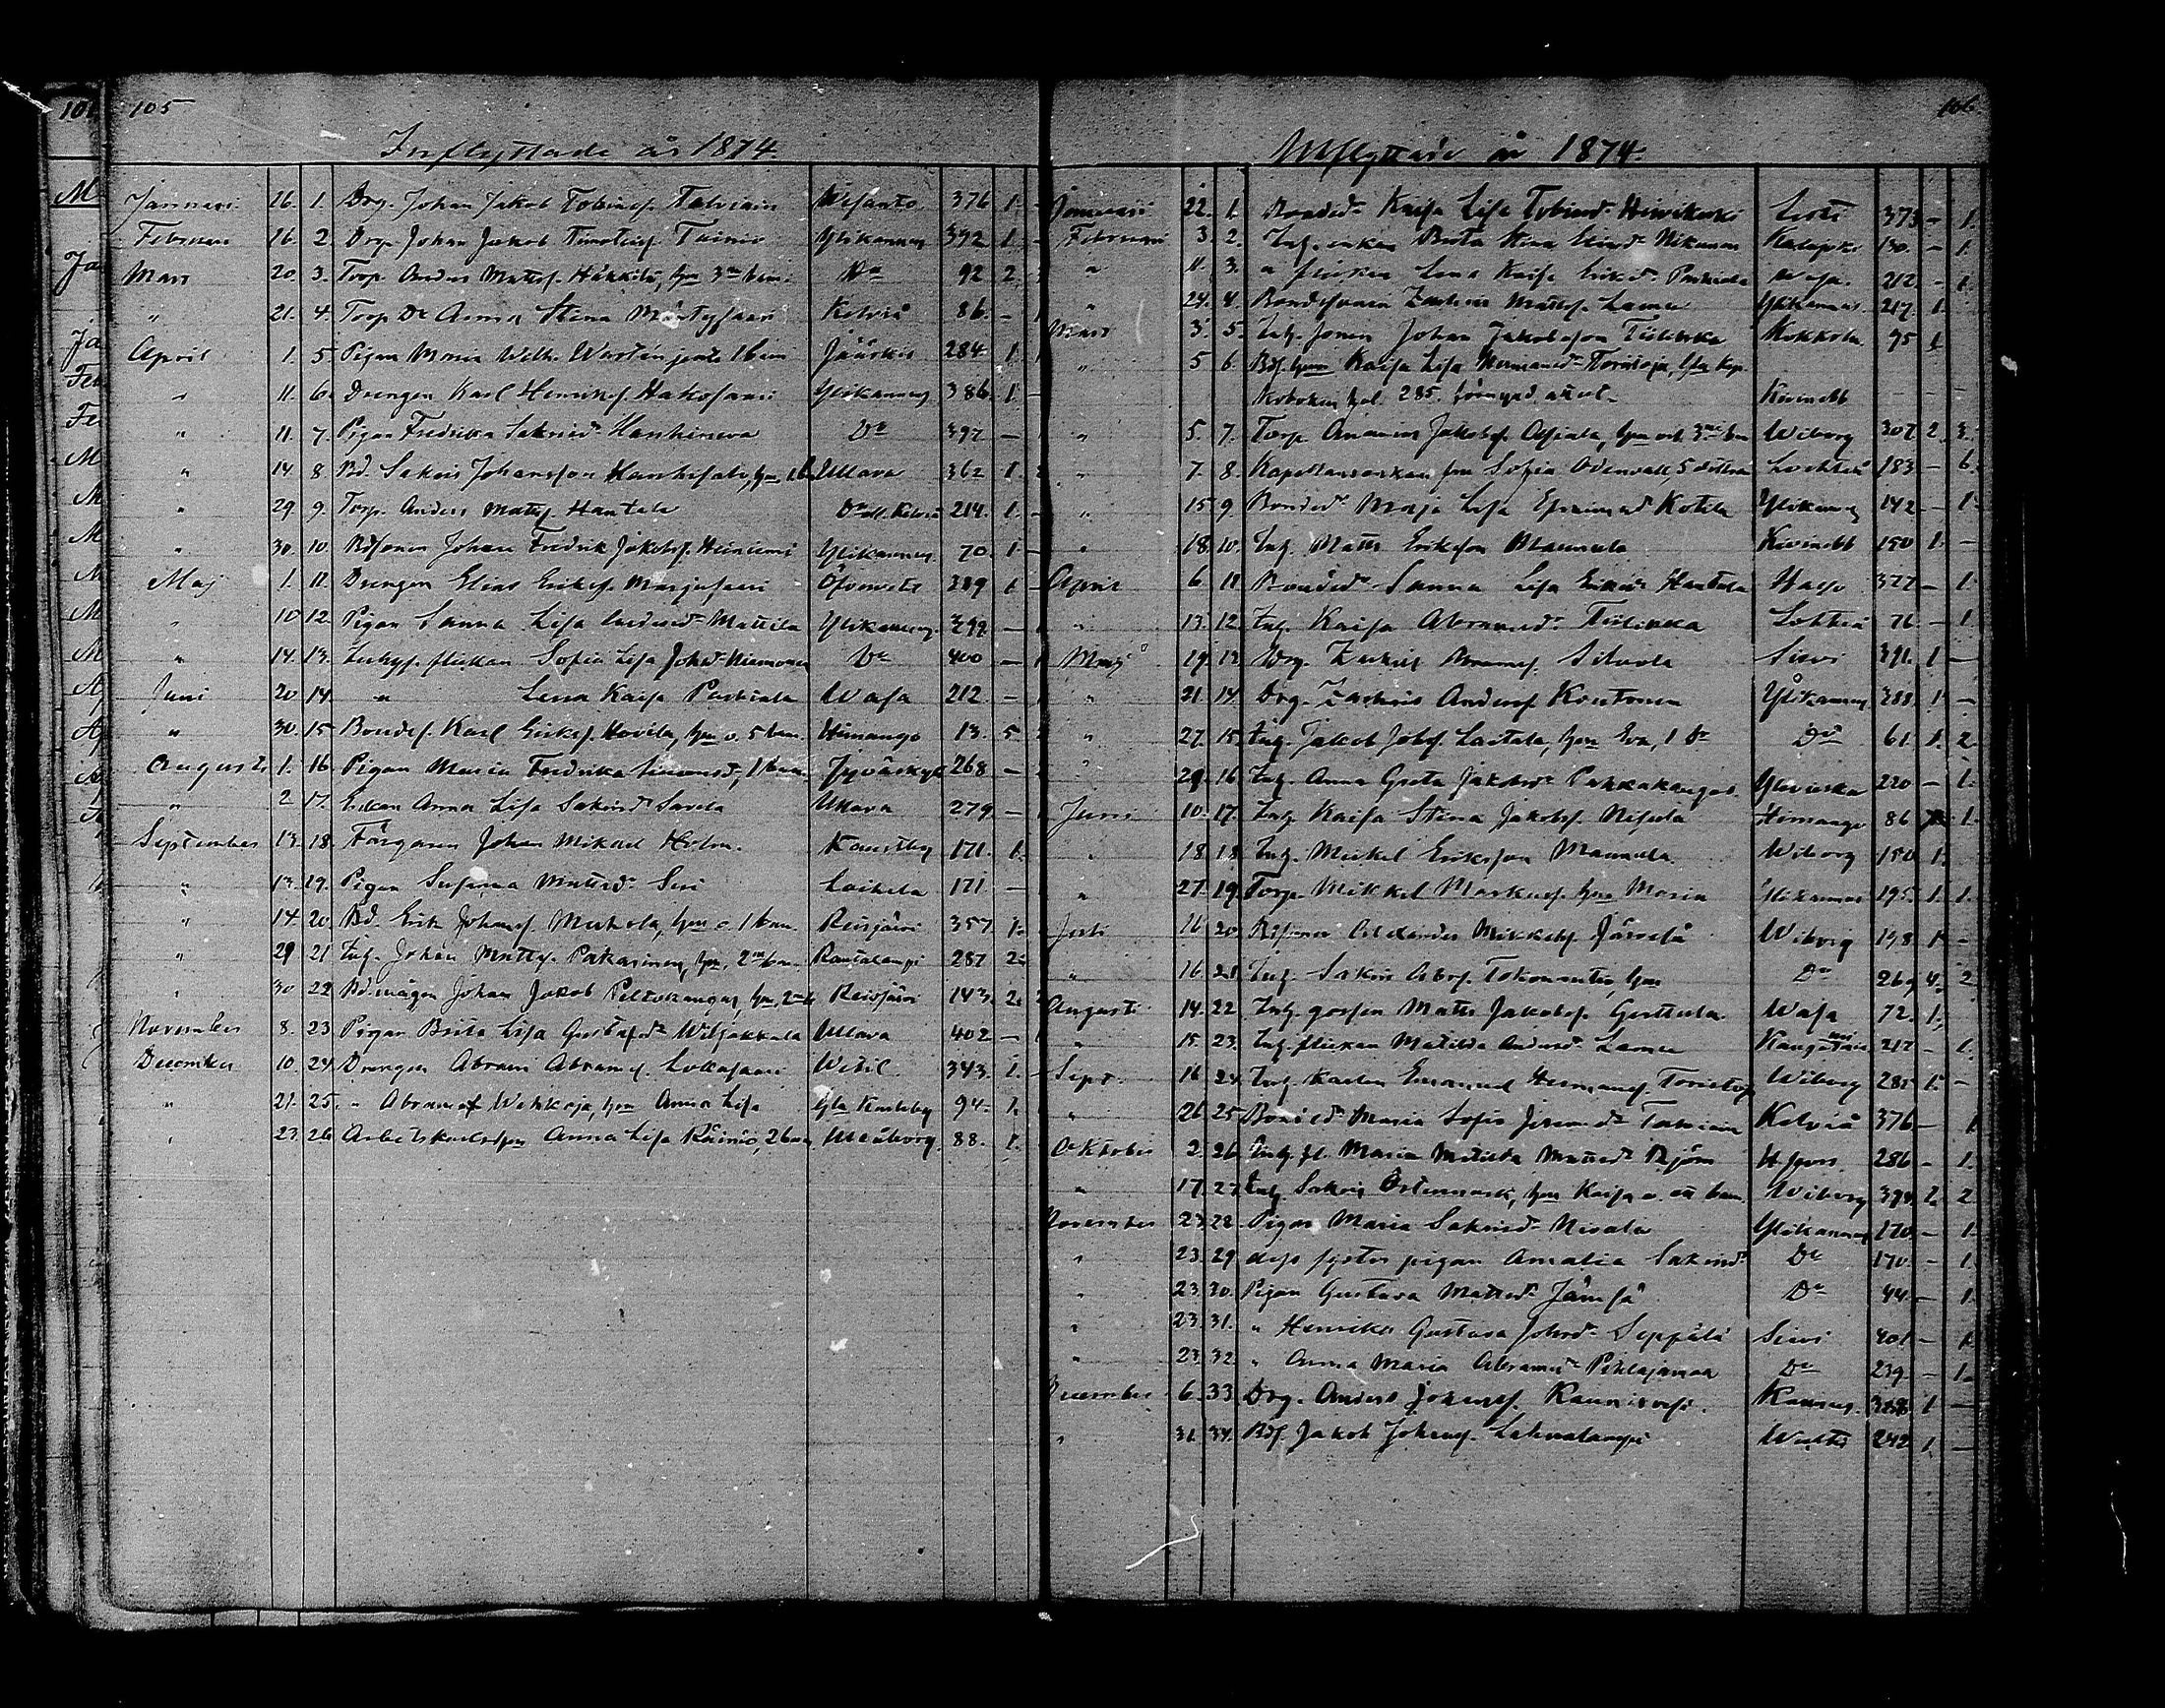 105
Inflyttade år 1874.
Januari 26. 1. Drg. Johan Jakob Tobiasf. Talviain Wesanto 376 1.
Februari 16. 2. Drg. Johan Jakob Timoteif. Tainio Ylikannus 392 1.
Mars 20. 3. Torp. Anders Mattsf. Häkkilä, hun 3ne barn Do 92 2.
" 21. 4. Torp. Dr Anna Stina Mäntysaari Kelviå 86. -
April 1. 5. Pigan Maria Wilh. Jääskis 284 1.
" 11. 6. Drengen Karl Henriksf. Hakosaari Ylikannus 386. 1. -
" 11. 7. Pigan Fredrika Sakrisd. Hanhineva Do 397 -
" 14 8. Bd. Sakris Johansson Hanhisalo, hun Ullava 362 1.
" 29 9. Torp. Anders Mattsf. Hautala 214. 1. -
" 30. 10. Bdsonen Johan Fredrik Jakobsf. Heiniemi Ylikannus. 70. 1. -
Maj 1. 11. Drengen Elias Eriksf. Marjusaari Öfvervetil 389 1 -
" 10 12. Pigan Sanna Lisa Mattila Ylikannus. 399. -
" 14. 13. Inhys. flickan Sofia Lisa Johsd. Niemonen Do 400 -
Juni 20 14. " Lena Kaisa Paskiala Wasa 212. -
" 30. 15 Bondes. Karl Eriksf. Hovila, hun o. 5 barn Himango 13. 5
Augusti 1. 16. Pigan Maria Fredrika Simonsd., 1 barn Jyväskyl 268 -
" 2 17. Enkan Anna Lisa Sakrisd. Savela Ullava 279 -
September 13. 18. Färgaren Johan Mikael Holm. Kaustby 171. 1.
" 13. 19. Pigan Susanna Mattsd. Susi Laihela 171 -
" 14. 20. Bd. Erik Johansf. Muhola, hun o. 1 barn Reisjärvi 357 1.
" 29 21 Inh. Johan Mattsf. Pakarinen, hun, 2ne barn Rautalampi 287 2.
" 30 22 Bdmågen Johan Jakob Peltokangas, hun, 2ne b. Reisjärvi 143. 2.
November 8. 23 Pigan Brita Lisa Gustafsd. Wiljakkala Ullava 402 -
December 10. 24 Drengen Abram Abramsf. Lokasaari Wetil 343. 1. -
" 21. 25. " Abram Wehkoja, hun Anna Lisa Gla Karleby 94. 1.
" 23. 26 Arbetskarlshun Anna Lisa Räiniö, 2 barn Uleåborg. 88. 1.
106
Utflyttade år 1874.
Januari 22. 1. Bonded. Kaisa Lisa Tobiasd. Hirvikoski Lesti 373 - 1.
Februari 3. 2. Inh. enkan Brita Stina Eliasd. Nikunen Kalajoki 130. - 1.
" 11. 3. " flickan Lena Kaisa Eriksd. Paskiala Wasa. 212. - 1.
" 24. 4. Bondesonen Zakris Mattsf. Lamu Ylikannus. 217. 1.
Mars 3. 5. Inh. sonen Johan Jakobsson Tiilikka Kokkola 75 1
" 5 6. Bds. hun Kaisa Lisa Hermansd. Tornioja,
fol. 285. Kivinebb
" 5. 7. Torp. Ananias Jakobsf. Ahola, hun och 3ne barn Wiborg 307. 2. 3.
" 7. 8. Kapellansenkan fru Sofia Odenvall, 5 döttrar Lochteå 183 - 6.
" 15 9. Bonded. Maja Lisa Efraimsd. Kotila Ylikannus 142 - 1.
" 18. 10. Inh. Matts Eriksson Maunula Kivinebb 150 1. -
April 6 11 Bonded. Sanna Lisa Eriksd. Hautala 327 - 1.
" 13. 12. Inh. Kaisa Abramsd. Tiilikka Lohteå 76. - 1.
Maj 19. 13. Drg. Zakris Abramsf. Siltala Sievi 391. 1 -
" 21. 14. Drg. Zakris Andersf. Kontonen Ylikannus 388. 1. -
" 27. 15. Inh. Jakob Johsf. Lastala, hun Eva, 1 Dr Do 61. 1. 2.
" 29. 16. Inh. Anna Greta Jakobsd. Pahkakangas Ylivieska 220 - 1.
Juni 10. 17. Inh. Kaisa Stina Jakobsf. Nisula Himango 86 - 1.
" 18 18. Inh. Mickel Eriksson Maunula. Wiborg 150 1.
" 27. 19. Torp. Mikkel Markusf. hun Maria Ylikannus 195. 1. 1.
Juli 16 20. Bdsonen Alexander Mikkelsf. Järvelä Wiborg 198 1. -
" 16. 21. Inh. Sakris Abrsf. hun Do 269 4. 2
Augusti 14. 22. Inh. gossen Matts Jakobsf. Guttula Wasa 72. 1.
" 15. 23. Inh. flickan Matilda Andersd. Lamu Kangasniemi 217 - 1.
Sept. 16 24. Inh. karlen Emanuel Hermansf. Wiborg 285 1. -
" 26 25 Bonded. Maria Sofia Talviain Kelviå 376 - 1
Oktober 2. 26. Inh. fl. Maria Matilda Mattsd. Björn H. fors. 286 - 1.
" 17. 27. Inh. Sakris Östermark, hun Kaisa o. ett barn. Wiborg 394. 2. 2
November 23 28. Pigan Maria Sakrisd. Nisula Ylikannus 170. - 1.
" 23. 29 dess syster pigan Amalia Sakrisd. Do 170. - 1.
" 23. 30. Pigan Gustava Mattsd. Jämsä Do 44 - 1.
" 23 31. " Henrika Gustava Johsd. Seppälä Sievi 401 - 1.
" 23. 32. " Anna Maria Abramsd. Pihlajamaa Do 239 - 1.
December 6. 33 Drg. Anders Johansf. Kaunisvesi. Kannus. 388 1 -
" 31. 34. Bds. Jakob Johansf. Lehnalampi 242 1. -